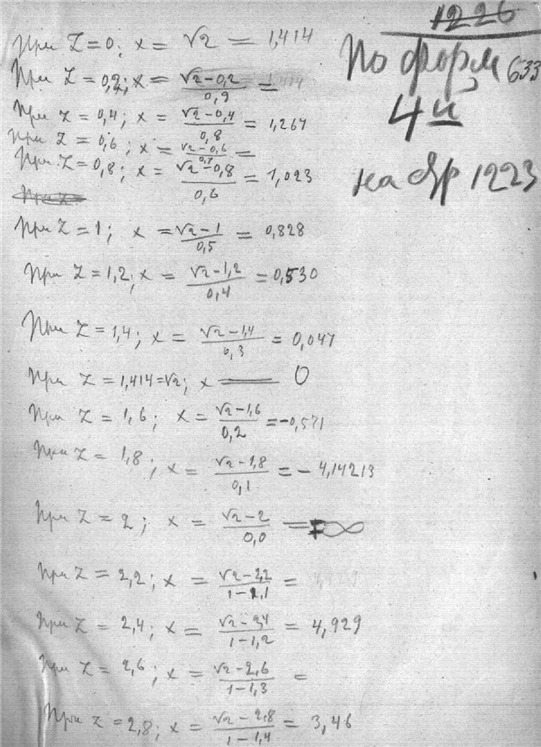 1226
По форм 633
4й
на стр 1223
При Z = 0; x = √2 = 1,414
При Z = 0,2; x = √2-0,2 / 0,9 =
При Z = 0,4; x = √2-0,4 / 0,8 = 1,267
При Z = 0,6; x = √2-0,6 / 0,7 =
При Z = 0,8; x = √2-0,8 / 0,6 = 1,023
При Z = 1; x = √2-1 / 0,5 = 0,828
При Z = 1,2; x = √2-1,2 / 0,4 = 0,530
При Z = 1,4; x = √2-1,4 / 0,3 = 0,047
При Z = 1,414=√2; x — 0
При Z = 1,6; x = √2-1,6 / 0,2 = -0,571
При Z = 1,8; x = √2-1,8 / 0,1 = - 4,14213
При Z = 2; x = √2-2 / 0,0 = ∓∞
При Z = 2,2; x = √2-2,2 / 1-1,1 =
При Z = 2,4; x = √2-2,4 / 1-1,2 = 4,929
При Z = 2,6; x = √2-2,6 / 1-1,3 =
При Z = 2,8; x = √2-2,8 / 1-1,4 = 3,46